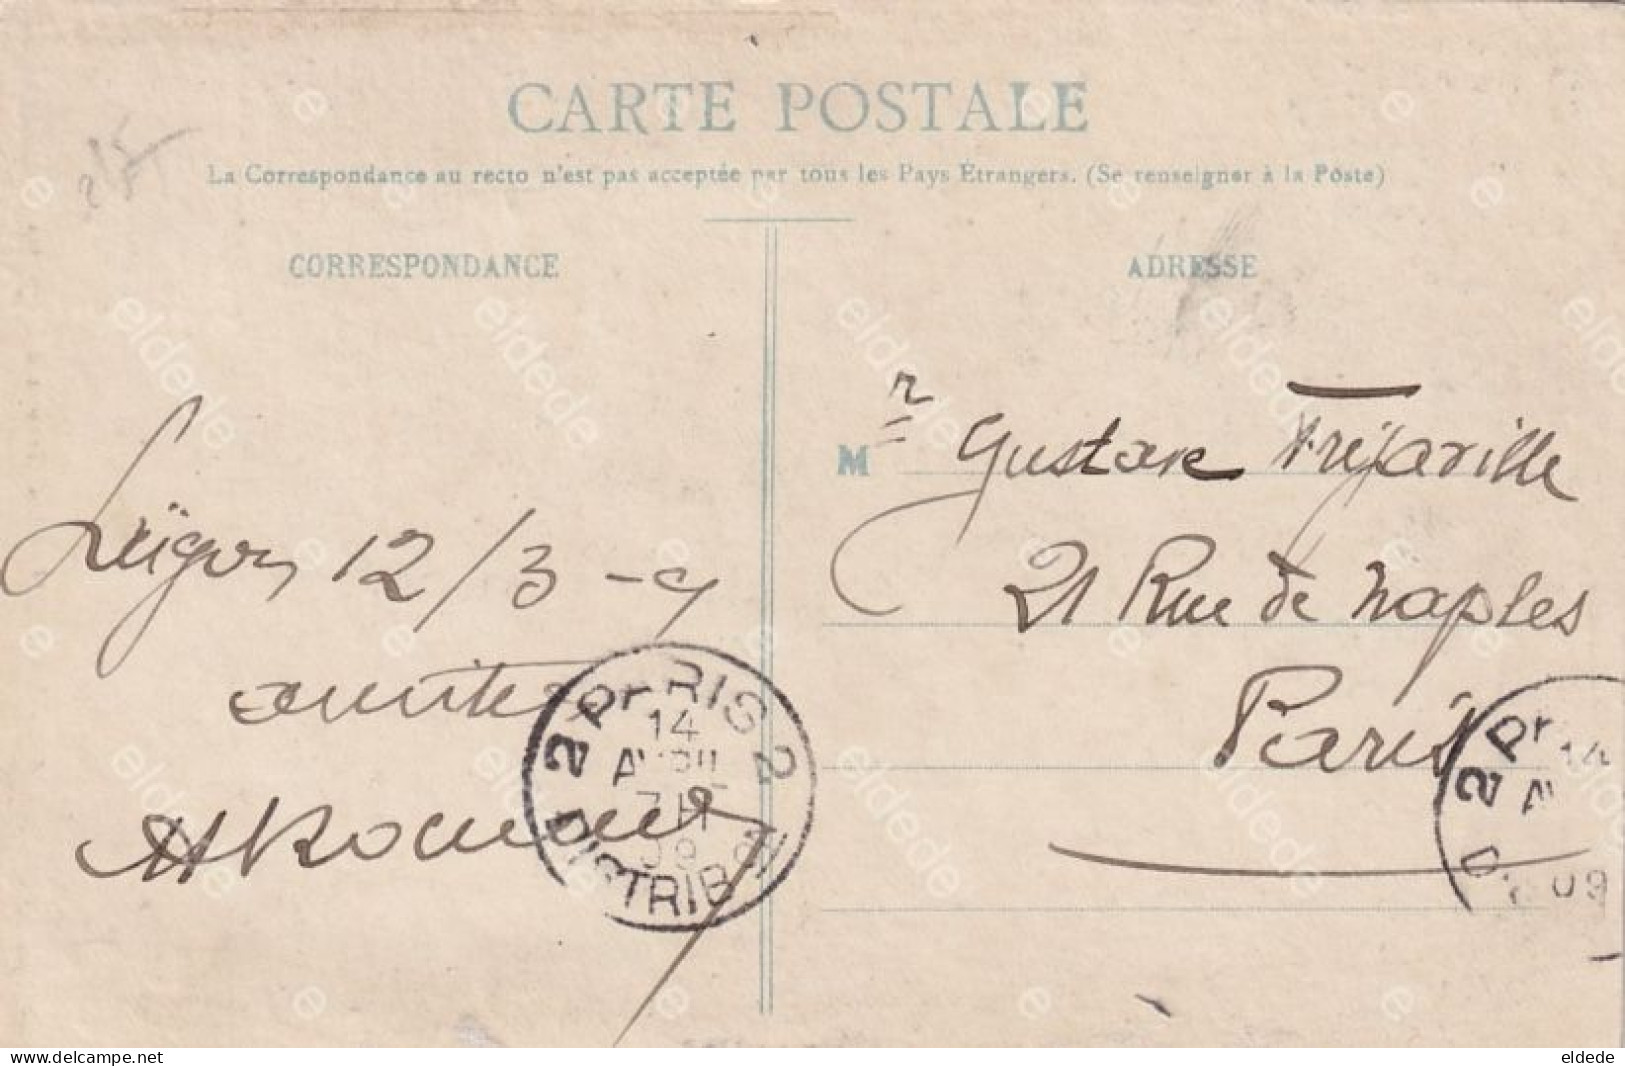 CARTE POSTALE
La Correspondance au recto n'est pas acceptée par tous les Pays Étrangers. (Se renseigner à la Poste)
CORRESPONDANCE
ADRESSE
Mr Gustave Fréjaville
21 Rue de Naples
Paris
Saïgon, 12/3-9
amitiés
PARIS 2
14
AVRIL
7H
09
DISTRIBON
2 P
14
AV
09
D
eldede